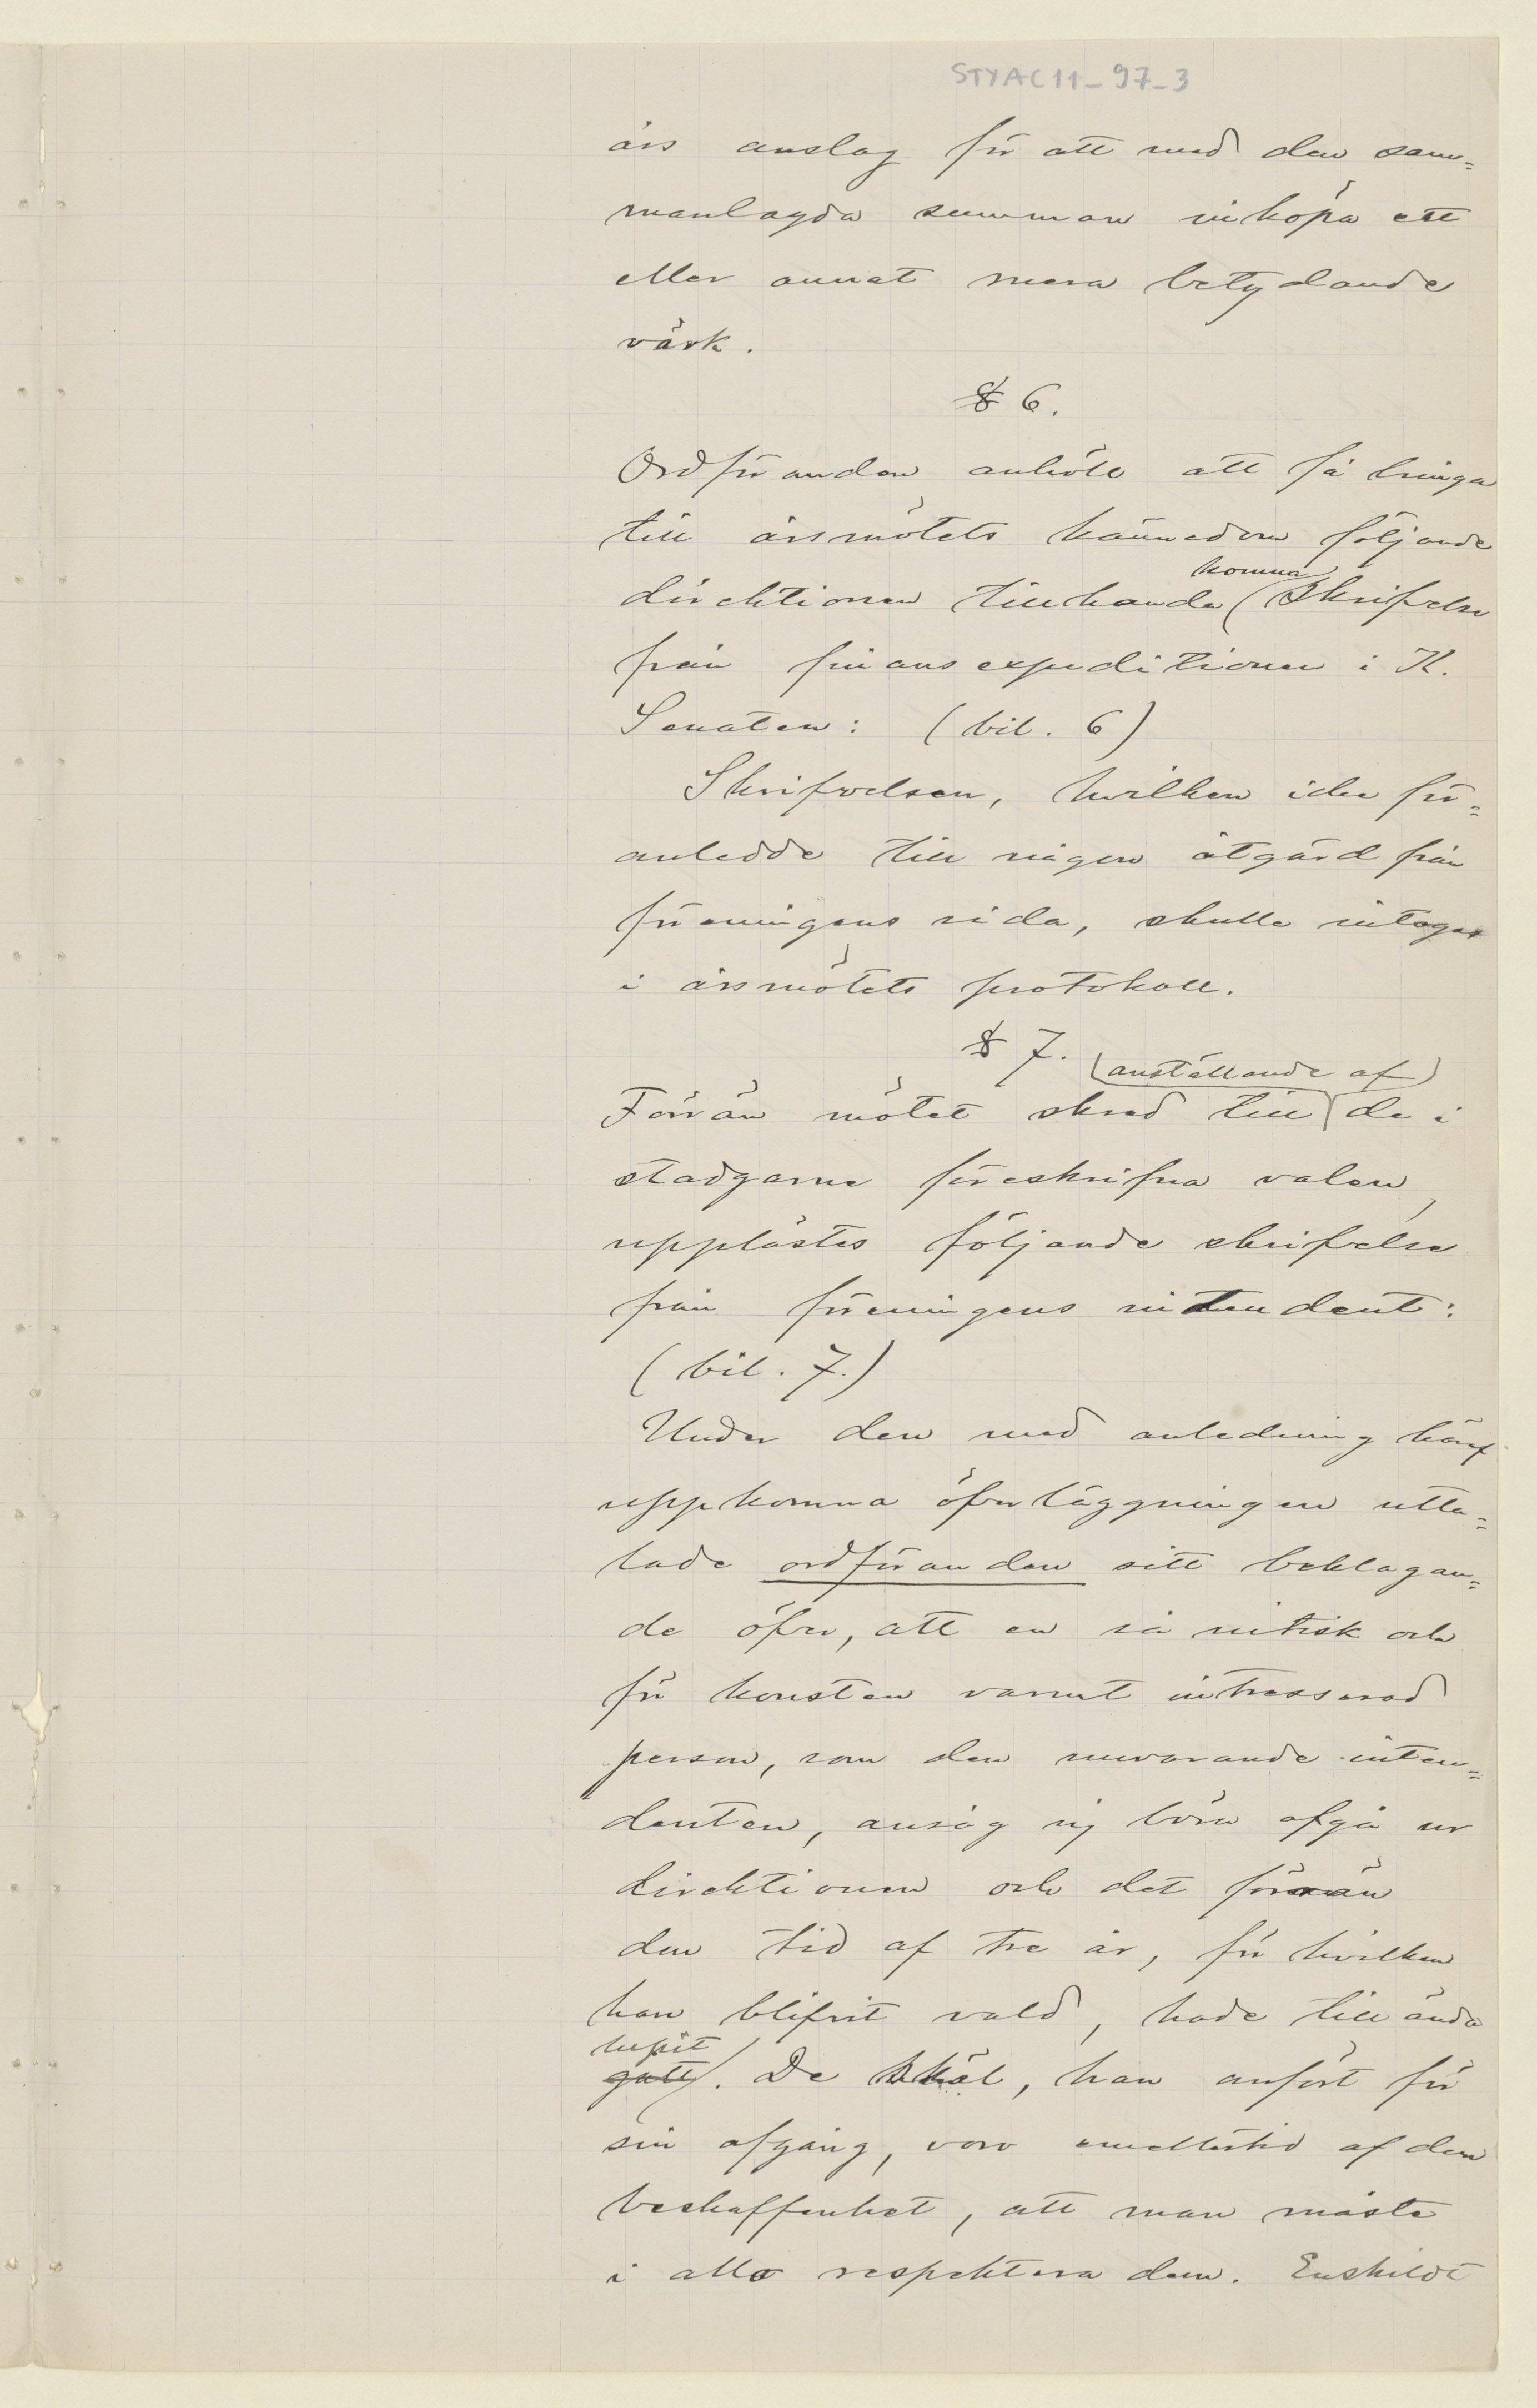 STYAC11_97_3
års anslag för att med den sam=
manlagda summan inköpa ett
eller annat mera betydande
värk.
§ 6.
Ordföranden anhöll att få bringa
till årsmötets kännedom följande
komna
direktionen tillhanda skrifvelse
från finansexpeditionen i K.
Senaten: (bil. 6)
Skrifvelsen, hvilken icke för=
anledde till någon åtgärd från
föreningens sida, skulle intagas
i årsmötets protokoll.
§ 7.
anställande af
Förrän mötet skred till de i
stadgarne föreskrifna valen,
upplästes följande skrifvelse
från föreningens intendent:
(bil. 7.)
Under den med anledning häraf
uppkomna öfverläggningen utta=
lade ordföranden sitt beklagan=
de öfver, att en så nitisk och
för konsten varmt intresserad
person, som den nuvarande inten=
denten, ansåg sig böra afgå ur
direktionen och det förrän
den tid af tre år, för hvilken
han blifvit vald, hade till ända
lupit
gått. De skäl, han anfört för
sin afgång, voro emellertid af den
beskaffenhet, att man måste
i allo respektera dem. Enskildt